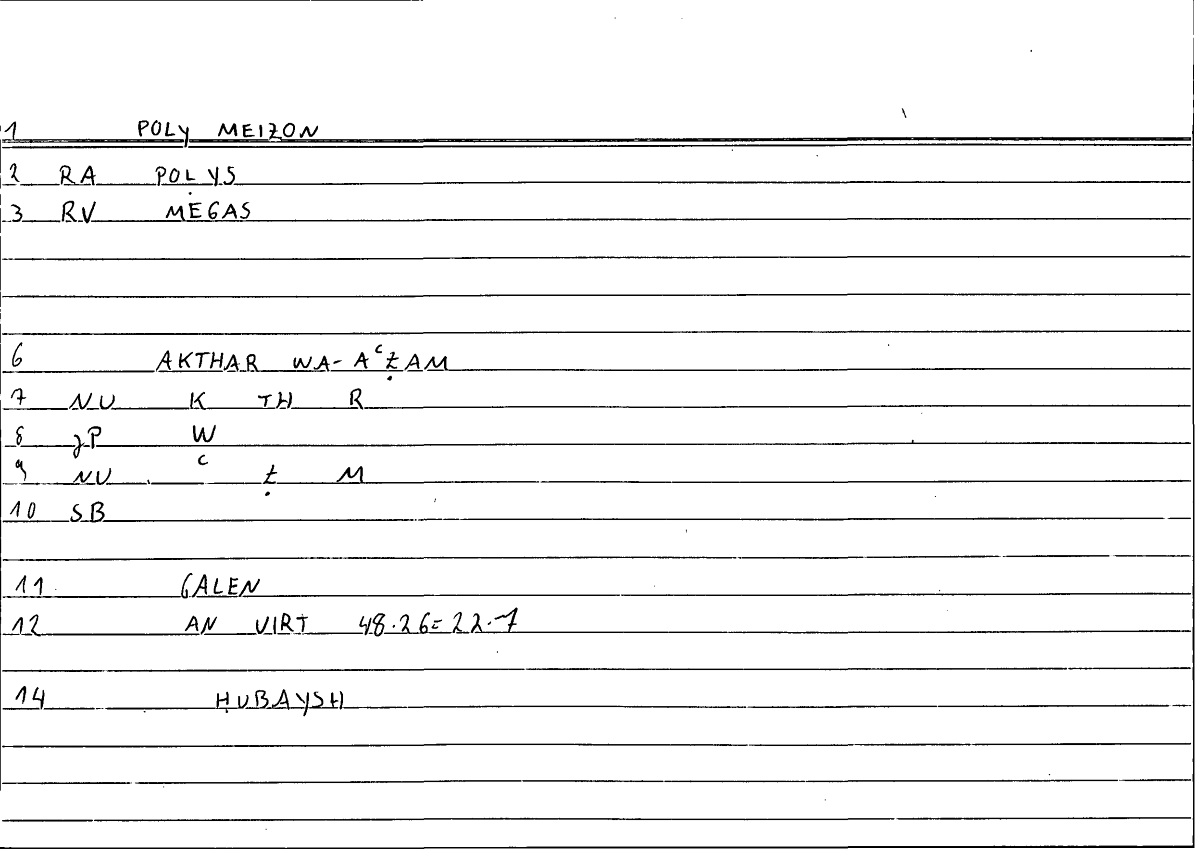 1 POLY MEIZON
2 RA POLYS
3 RV MEGAS
6 AKTHAR WA-AʿẒAM
7 NU K TH R
8 JP W
9 NU ʿ Ẓ M
10 SB
11 GALEN
12 AN VIRT 48.26=22.7
14 ḤUBAYSH